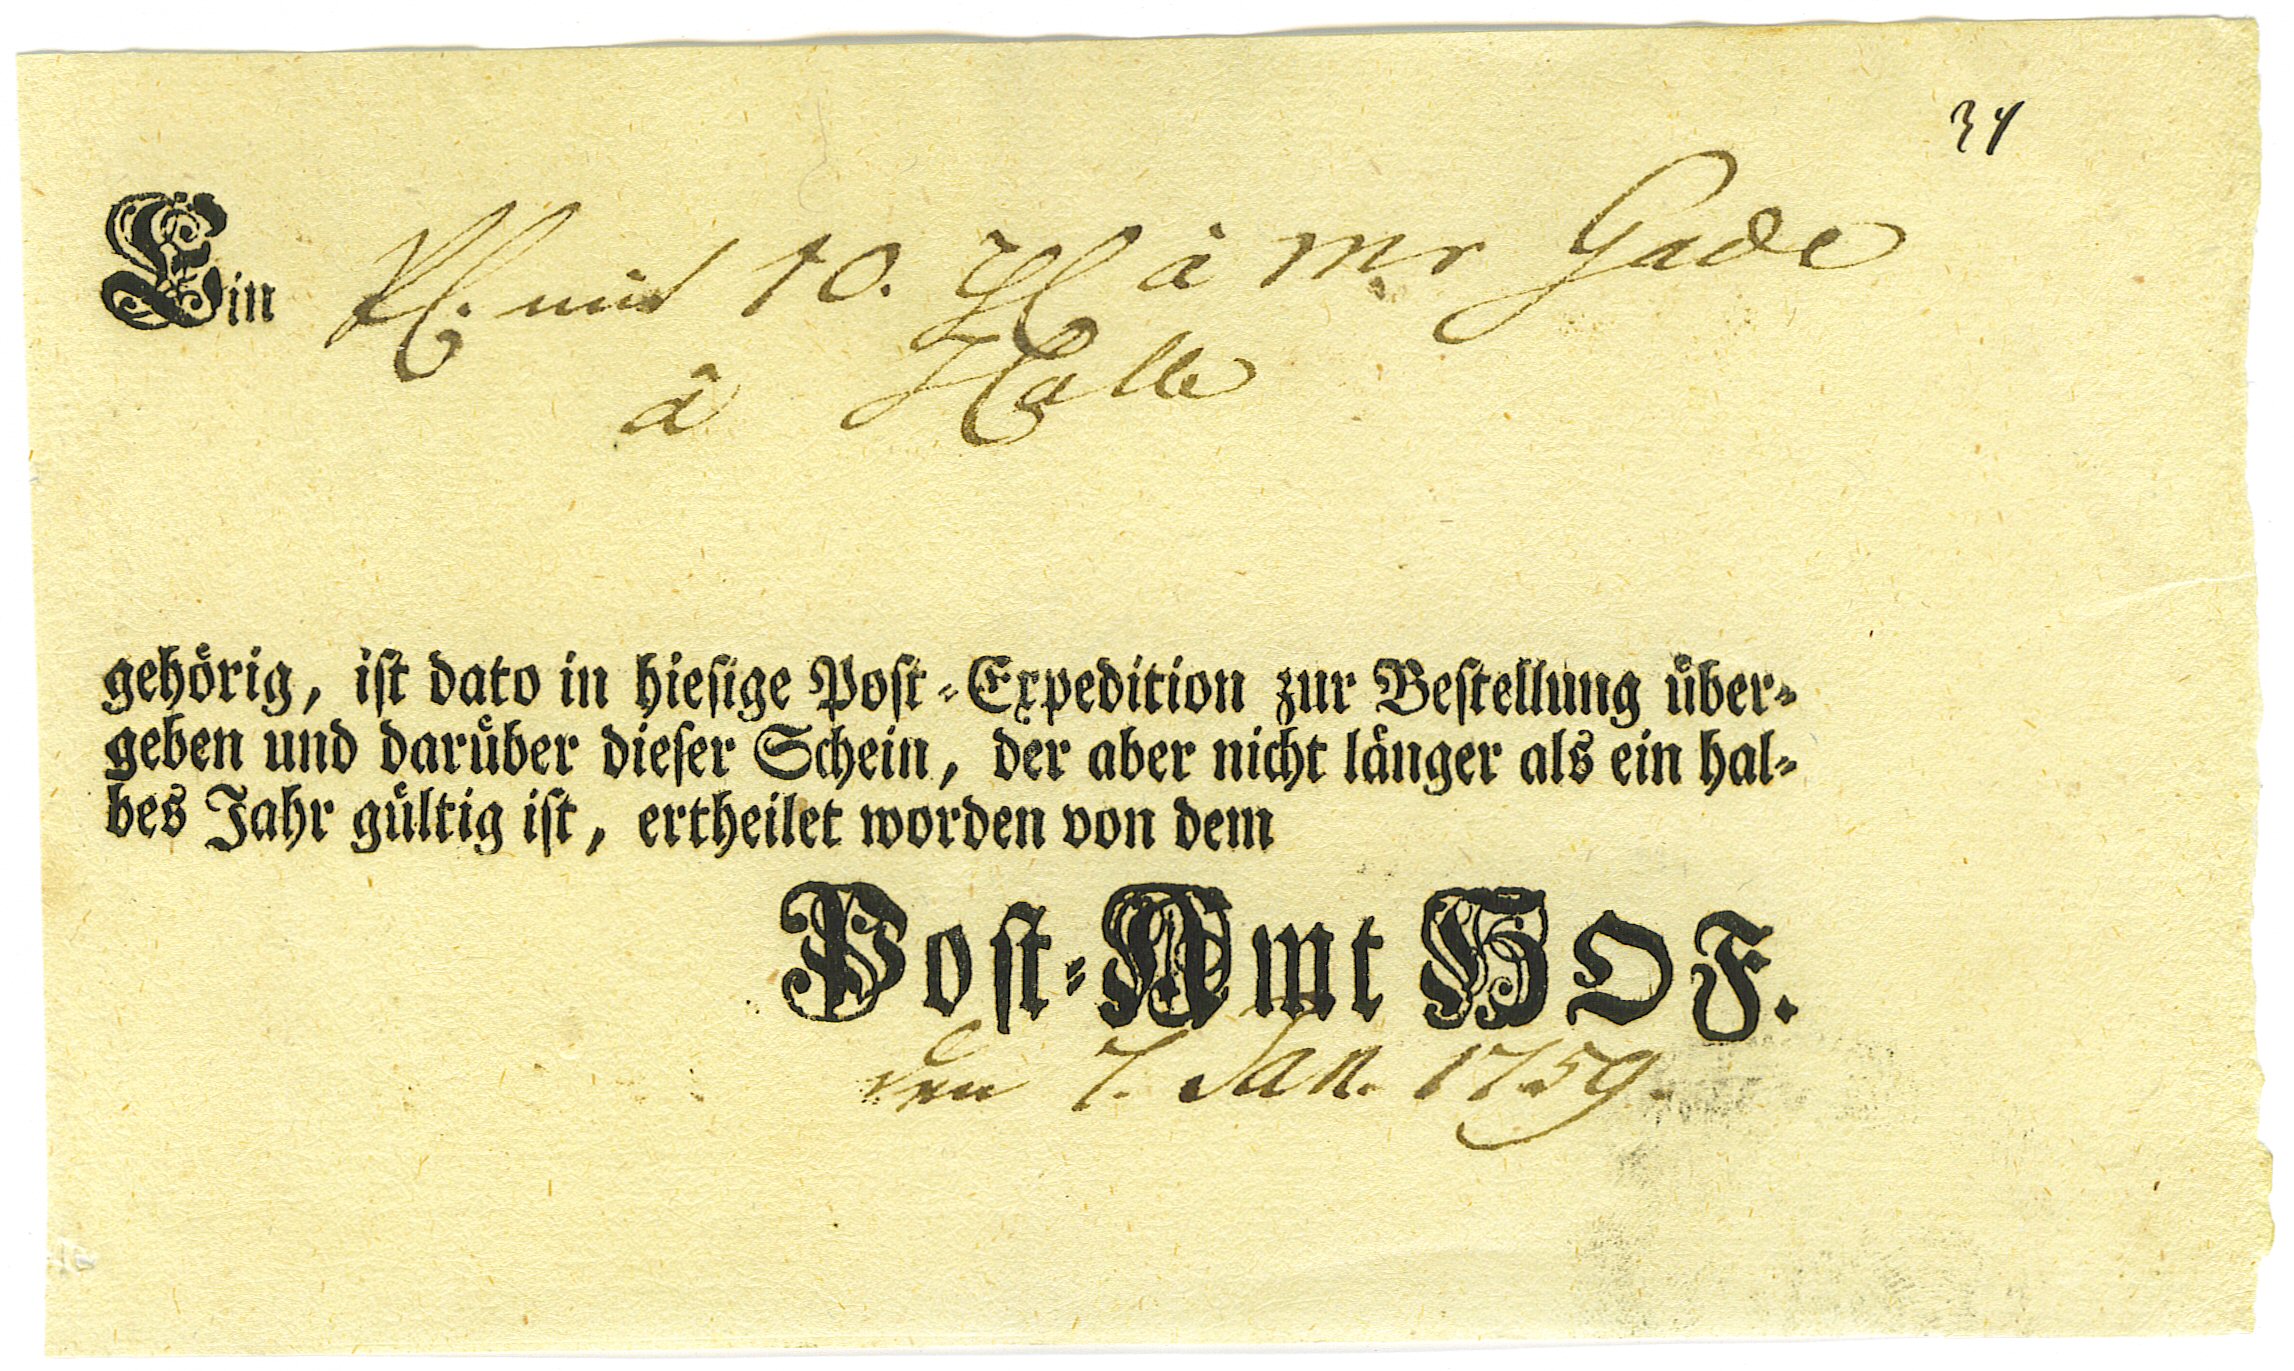 34
Ein mit 10. à Mr Gade
à Halle
gehörig, ist dato in hiesige Post-Expedition zur Bestellung über-
geben und darüber dieser Schein, der aber nicht länger als ein hal-
bes Jahr gültig ist, ertheilet worden von dem
Post-Amt HOF.
den 7. Jan. 1759.